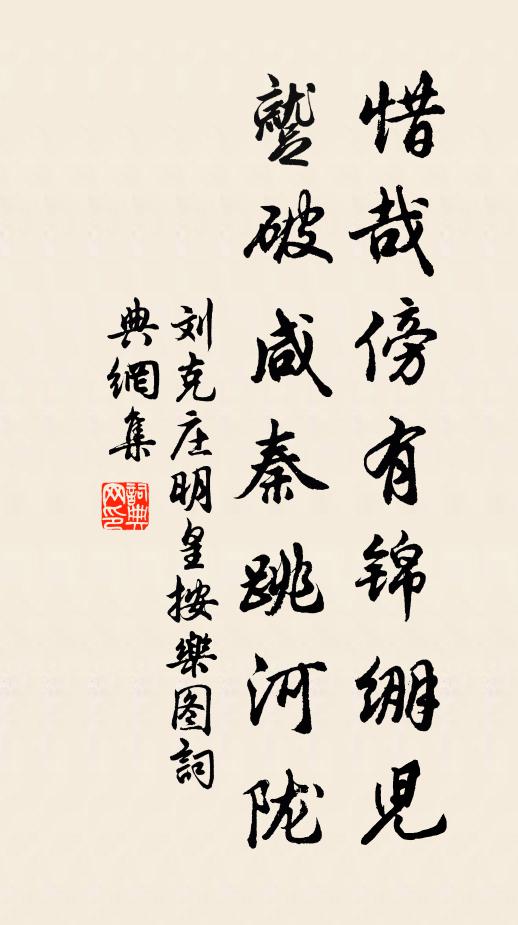 惜哉傍有锦绷児
蹵破咸秦跳河陇
刘克庄明皇按樂图詞
典網集
詞典
网印